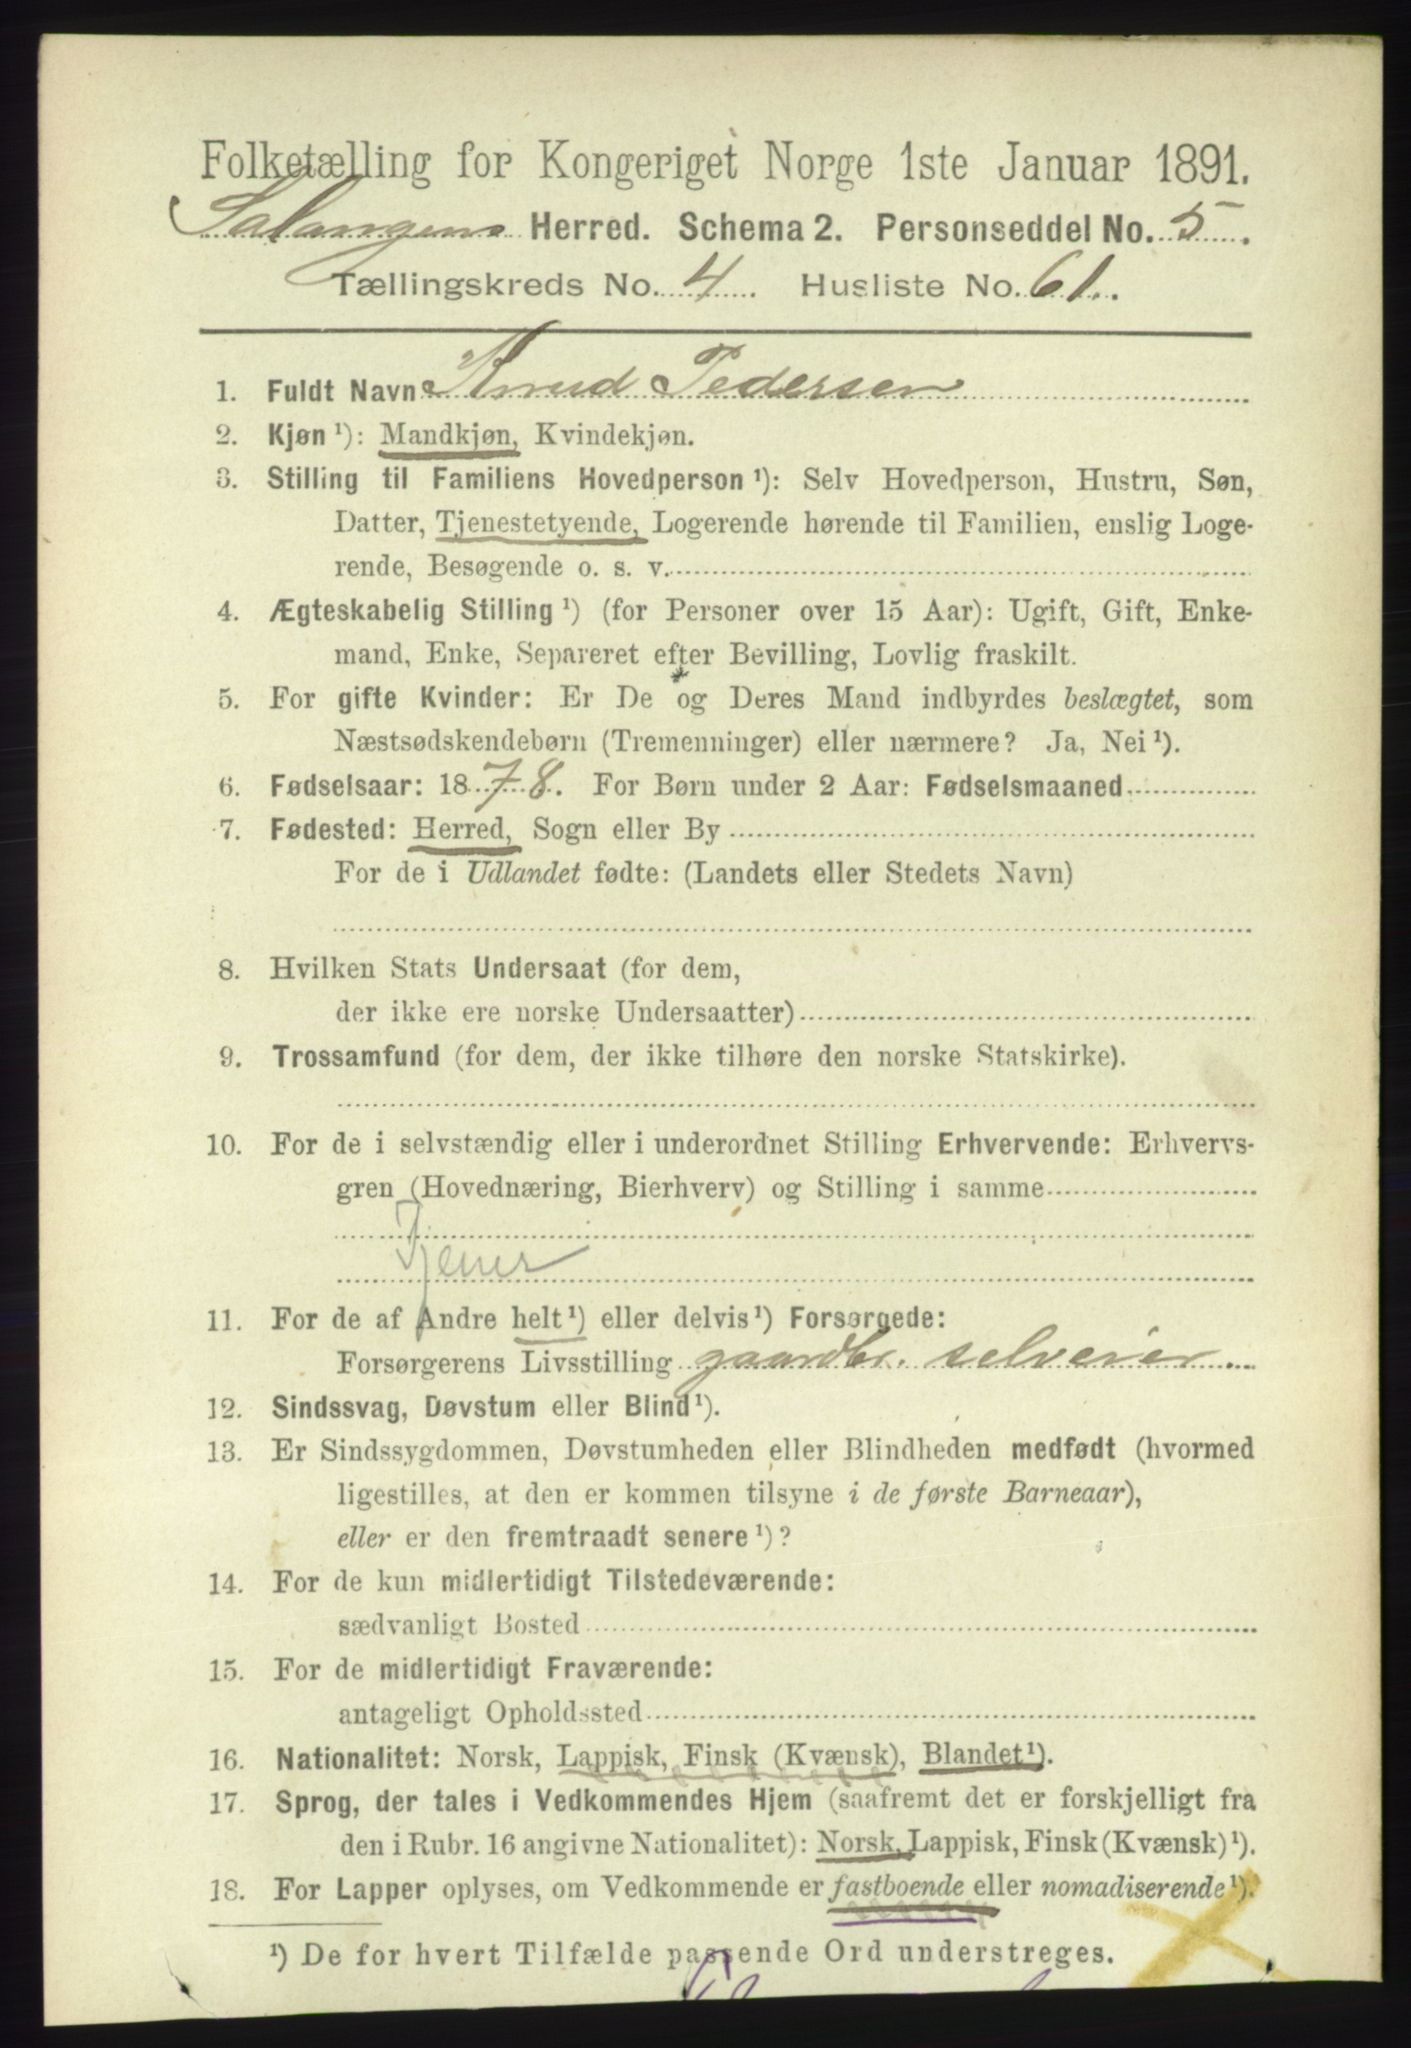 Folketælling for Kongeriget Norge 1ste Januar 1891.
Salangens Herred. Schema 2. Personseddel No. 5.
Tællingskreds No. 4. Husliste No. 61.
1. Fuldt Navn Knud Pedersen
2. Kjøn ¹): Mandkjøn, Kvindekjøn.
3. Stilling til Familiens Hovedperson ¹): Selv Hovedperson, Hustru, Søn,
Datter, Tjenestetyende, Logerende hørende til Familien, enslig Loge-
rende, Besøgende o. s. v.
4. Ægteskabelig Stilling ¹) (for Personer over 15 Aar): Ugift, Gift, Enke-
mand, Enke, Separeret efter Bevilling, Lovlig fraskilt.
5. For gifte Kvinder: Er De og Deres Mand indbyrdes beslægtet, som
Næstsødskendebørn (Tremenninger) eller nærmere? Ja, Nei ¹).
6. Fødselsaar: 1878. For Børn under 2 Aar: Fødselsmaaned
7. Fødested: Herred, Sogn eller By
For de i Udlandet fødte: (Landets eller Stedets Navn)
8. Hvilken Stats Undersaat (for dem,
der ikke ere norske Undersaatter)
9. Trossamfund (for dem, der ikke tilhøre den norske Statskirke).
10. For de i selvstændig eller i underordnet Stilling Erhvervende: Erhvervs-
gren (Hovednæring, Bierhverv) og Stilling i samme
Tjener
11. For de af Andre helt ¹) eller delvis ¹) Forsørgede:
Forsørgerens Livsstilling gaardbr. selveier.
12. Sindssvag, Døvstum eller Blind ¹).
13. Er Sindssygdommen, Døvstumheden eller Blindheden medfødt (hvormed
ligestilles, at den er kommen tilsyne i de første Barneaar),
eller er den fremtraadt senere ¹)?
14. For de kun midlertidigt Tilstedeværende:
sædvanligt Bosted
15. For de midlertidigt Fraværende:
antageligt Opholdssted
16. Nationalitet: Norsk, Lappisk, Finsk (Kvænsk), Blandet ¹).
17. Sprog, der tales i Vedkommendes Hjem (saafremt det er forskjelligt fra
den i Rubr. 16 angivne Nationalitet): Norsk, Lappisk, Finsk (Kvænsk) ¹).
18. For Lapper oplyses, om Vedkommende er fastboende eller nomadiserende ¹).
¹) De for hvert Tilfælde passende Ord understreges.